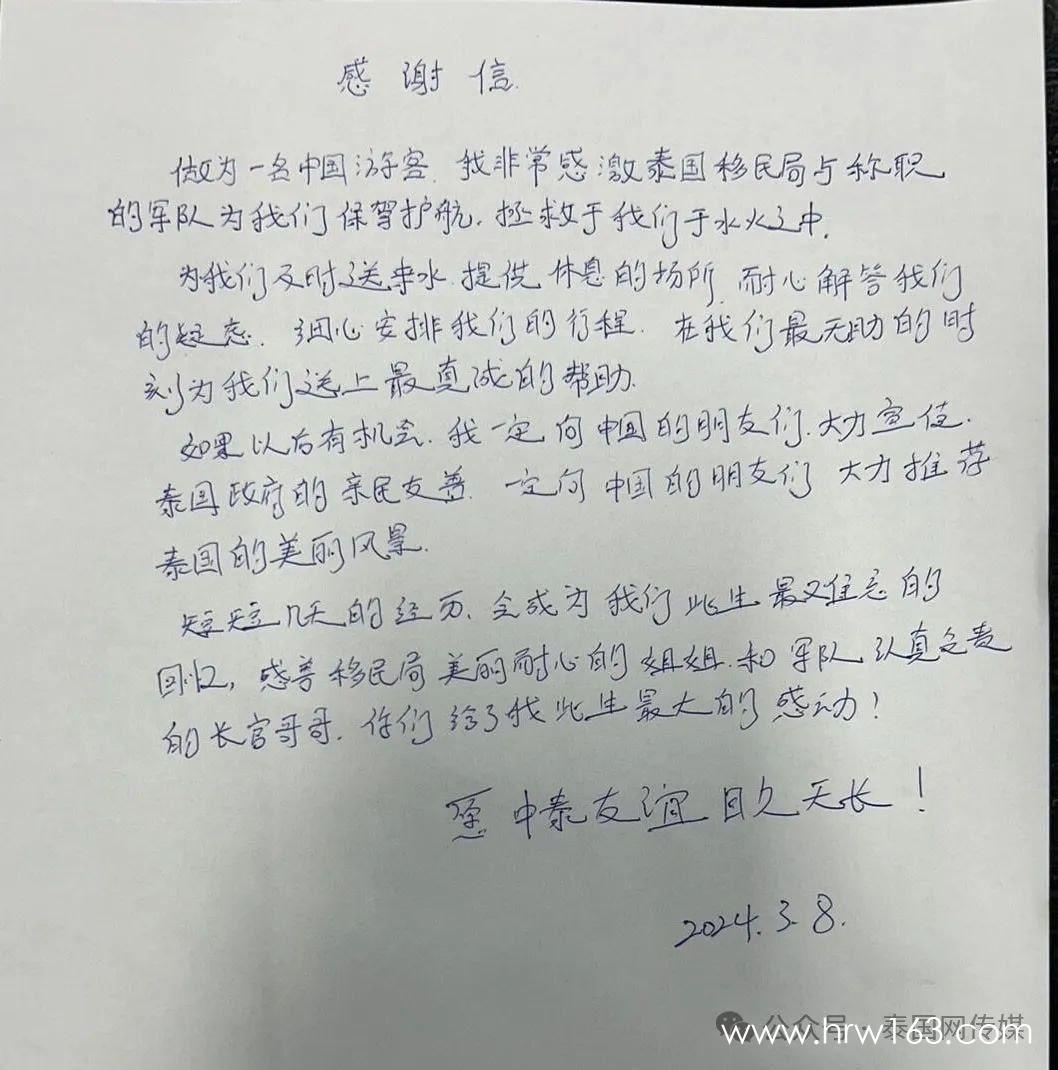 感谢信
做为一名中国游客.我非常感激泰国移民局与称职
的军队为我们保驾护航.拯救于我们于水火之中.
为我们及时送来水.提供休息的场所.耐心解答我们
的疑惑.细心安排我们的行程.在我们最无助的时
刻为我们送上最真诚的帮助.
如果以后有机会.我一定向中国的朋友们.大力宣传.
泰国政府的亲民友善.一定向中国的朋友们大力推荐
泰国的美丽风景.
短短几天的经历.会成为我们此生最难忘的
回忆,感善移民局美丽耐心的姐姐.和军队认真负责
的长官哥哥.你们给了我此生最大的感动!
愿中泰友谊日久天长!
2024.3.8.
公众号·泰国网传媒
www.hrw163.com